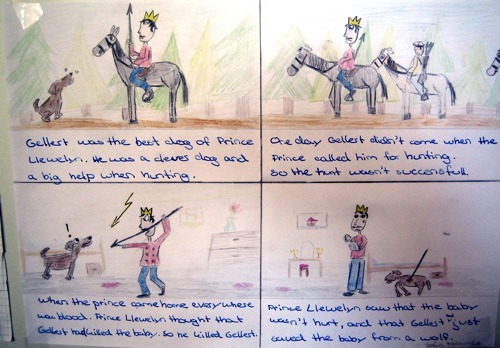 Gellest was the best dog of Prince
Llewelyn. He was a clever dog and
a big help when hunting.
One day Gellest didn't come when the
Prince called him for hunting.
So the hunt wasn't successfull.
When the prince came home everywhere
was blood. Prince Llewelyn thought that
Gellest had killed the baby. So he killed Gellest.
Prince Llewelyn saw that the baby
wasn't hurt, and that Gellest had just
saved the baby from a wolf.